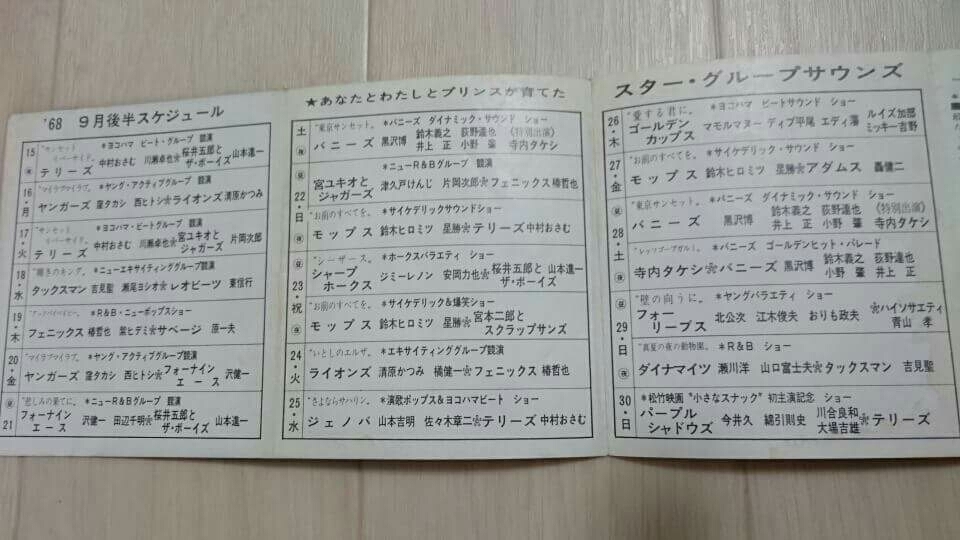 '68 9月後半スケジュール
15
"サンセット リバーサイド〟 *ヨコハマ ビート・グループ 競演
テリーズ 中村おさむ 川瀬卓也☆桜井五郎とザ・ボーイズ 山本進一
16・月
"マイラブマイラブ〟 *ヤング・アクティブグループ 競演
ヤンガーズ 窪タカシ 西ヒトシ☆ライオンズ 清原かつみ
17・火
"サンセット リバーサイド〟 *ヨコハマ・ビートグループ 競演
テリーズ 中村おさむ 川瀬卓也☆宮ユキオとジャガーズ 片岡次郎
18・水
"嘆きのキング〟 *ニューエキサイティンググループ 競演
タックスマン 吉見聖 瀬尾ヨシオ☆レオビーツ 東信行
19・木
*R&B・ニューポップスショー
フェニックス 椿哲也 紫ヒデミ☆サベージ 原一夫
20・金
"マイラブマイラブ〟 *ヤング・アクティブグループ 競演
ヤンガーズ 窪タカシ 西ヒトシ☆フォーナインエース 沢健一
21
"悲しみの果てに〟 *ニューR&Bグループ 競演
フォーナインエース 沢健一 田辺千明☆桜井五郎とザ・ボーイズ 山本進一
★あなたとわたしとプリンスが育てた
土
"東京サンセット〟 *バニーズ ダイナミック・サウンド ショー
バニーズ 黒沢博 鈴木義之 荻野達也 井上正 小野肇 (特別出演) 寺内タケシ
22・日
*ニューR&Bグループ 競演
宮ユキオとジャガーズ 津久戸けんじ 片岡次郎☆フェニックス 椿哲也
"お前のすべてを〟 *サイケデリックサウンドショー
モップス 鈴木ヒロミツ 星勝☆テリーズ 中村おさむ
23・祝
"シーザース〟 *ホークスバラエティ ショー
シャープホークス ジミーレノン 安岡力也☆桜井五郎とザ・ボーイズ 山本進一
"お前のすべてを〟 *サイケデリック&爆笑ショー
モップス 鈴木ヒロミツ 星勝☆宮本二郎とスクラップサンズ
24・火
"いとしのエルザ〟 *エキサイティンググループ競演
ライオンズ 清原かつみ 橘健一☆フェニックス 椿哲也
25・水
"さよならサハリン〟 *演歌ポップス&ヨコハマビート ショー
ジェノバ 山本吉明 佐々木章二☆テリーズ 中村おさむ
スター・グループサウンズ
26・木
"愛する君に〟 *ヨコハマ ビートサウンド ショー
ゴールデンカップス マモルマヌー ディブ平尾 エディ藩 ルイズ加部 ミッキー吉野
27・金
"お前のすべてを〟 *サイケデリック・サウンド ショー
モップス 鈴木ヒロミツ 星勝☆アダムス 轟健二
28・土
"東京サンセット〟 *バニーズ ダイナミック・サウンド ショー
バニーズ 黒沢博 鈴木義之 荻野達也 井上正 小野肇 (特別出演) 寺内タケシ
"レッツゴーブガルー〟 *バニーズ ゴールデンヒット・パレード
寺内タケシ☆バニーズ 黒沢博 鈴木義之 荻野達也 小野肇 井上正
29・日
"壁の向うに〟 *ヤングバラエティ ショー
フォーリーブス 北公次 江木俊夫 おりも政夫 ☆ハイソサエティ 青山孝
"真夏の夜の動物園〟 *R&B ショー
ダイナマイツ 瀬川洋 山口富士夫☆タックスマン 吉見聖
30・日
*松竹映画 "小さなスナック〟 初主演記念 ショー
パープルシャドウズ 今井久 綿引則史 川合良和 大場吉雄 ☆テリーズ